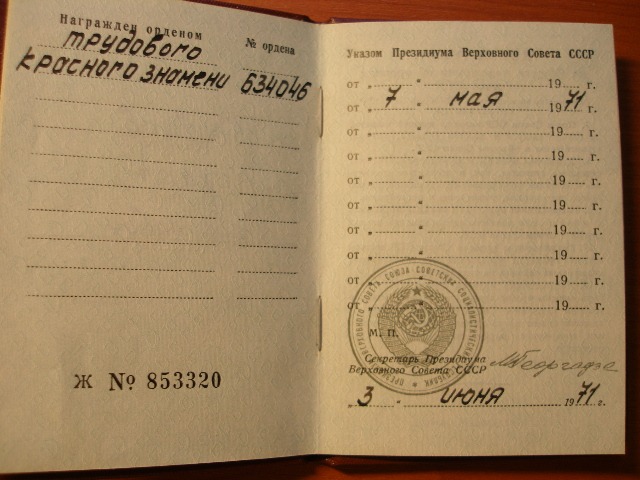 Награжден орденом
№ ордена
трудового
красного знамени 634046
Ж № 853320
Указом Президиума Верховного Совета СССР
от „ “ 19 г.
от „ 7 “ мая 1971 г.
от „ “ 19 г.
от „ “ 19 г.
от „ “ 19 г.
от „ “ 19 г.
от „ “ 19 г.
от „ “ 19 г.
от „ “ 19 г.
от „ “ 19 г.
М. П.
Секретарь Президиума
Верховного Совета СССР
М Георгадзе
„ 3 “ июня 1971 г.